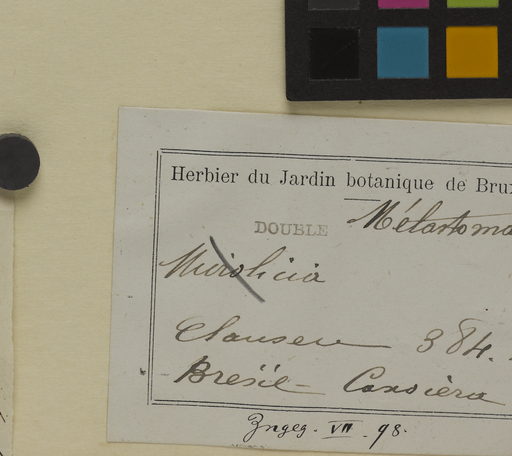 Herbier du Jardin botanique de Brux
DOUBLE Mélastoma
Microlicia
Claussen 384.
Brésil - Cavoièra
Zngeg. VII. 98.